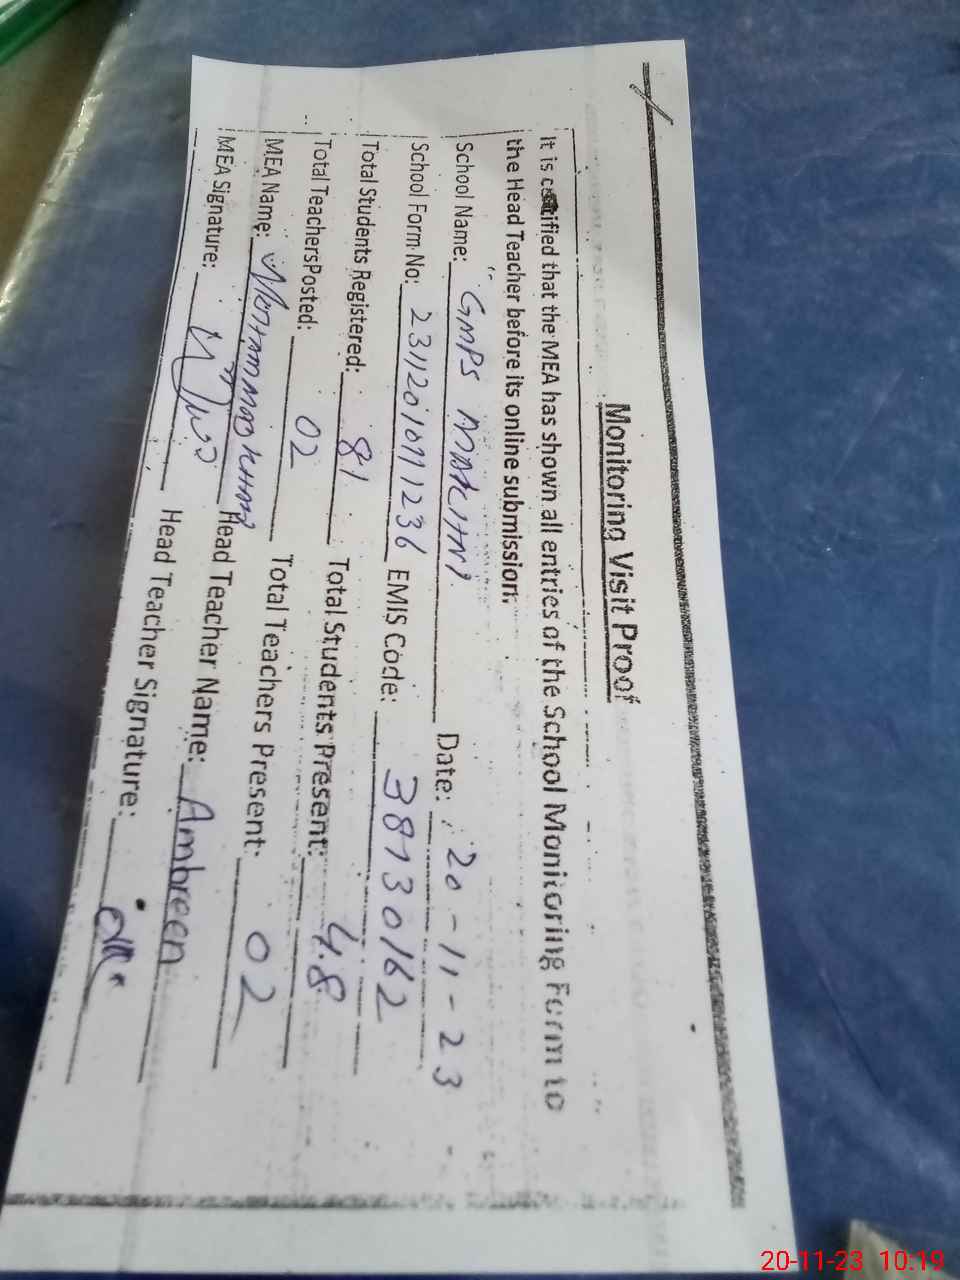 Monitoring Visit Proof
It is certified that the MEA has shown all entries of the School Monitoring Form to
the Head Teacher before its online submission.
School Name: GMPS MAKHNI Date: 20-11-23
School Form No: EMIS Code: 38130162
Total Students Registered: 81 Total Students Present: 48
Total TeachersPosted: 02 Total Teachers Present: 02
MEA Name: MUHAMMAD KHAN Head Teacher Name: Ambreen
MEA Signature: Head Teacher Signature:
20-11-23 10:19